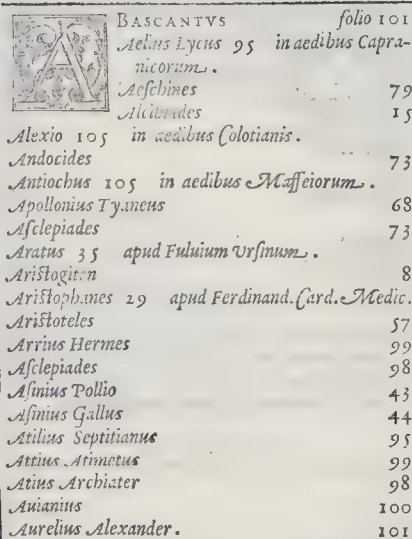 ABASCANTVS folio 101
Aelius Lycus 95 in aedibus Capra-
nicorum.
Aeschines 79
Alcibiades 15
Alexio 105 in aedibus Colotianis.
Andocides 73
Antiochus 105 in aedibus Maffeiorum.
Apollonius Tyaneus 68
Asclepiades 73
Aratus 35 apud Fuluium Vrsinum.
Aristogiton 8
Aristophanes 29 apud Ferdinand. Card. Medic.
Aristoteles 57
Arrius Hermes 99
Asclepiades 98
Asinius Pollio 43
Asinius Gallus 44
Atilius Septitianus 95
Attius Atimetus 99
Atius Archiater 98
Auianius 100
Aurelius Alexander. 101